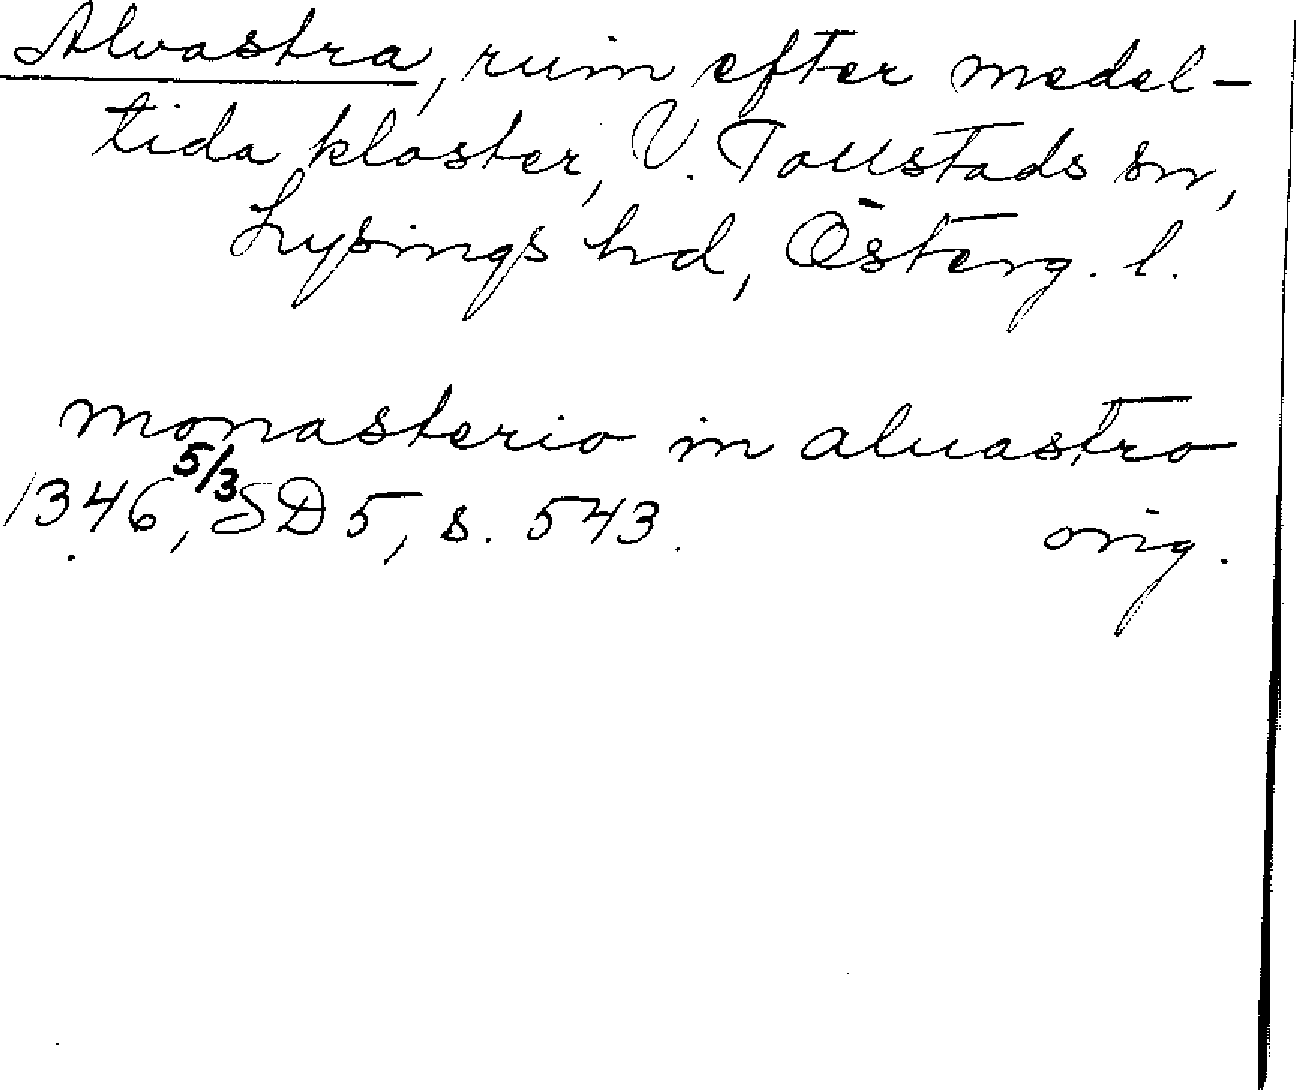 Alvastra, ruin efter medel-
tida kloster, V. Tollstads sn,
Lysings hd, Österg. l.
monasterio in aluastro
1346, 5/3 SD 5, s. 543. orig.